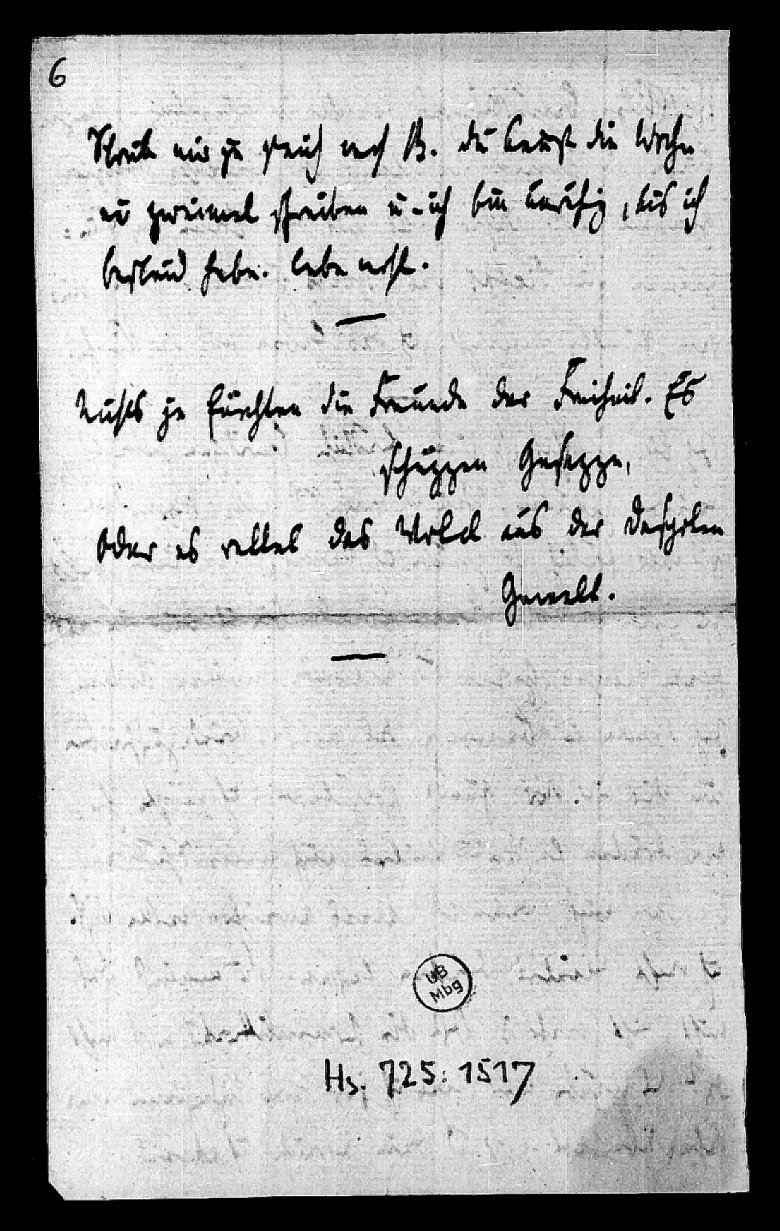 6
Schreib mir ja gleich nach B. du kannst die Woche
nur zweimal schreiben u. ich bin unruhig, bis ich
bescheid habe. Lebe wohl.
Nichts zu fürchten die Freunde der Freiheit. Es
schüzzen Gesezze,
oder es rettet das Volck aus der Despoten
Gewalt.
UB
Mbg
Hs. 725:1517